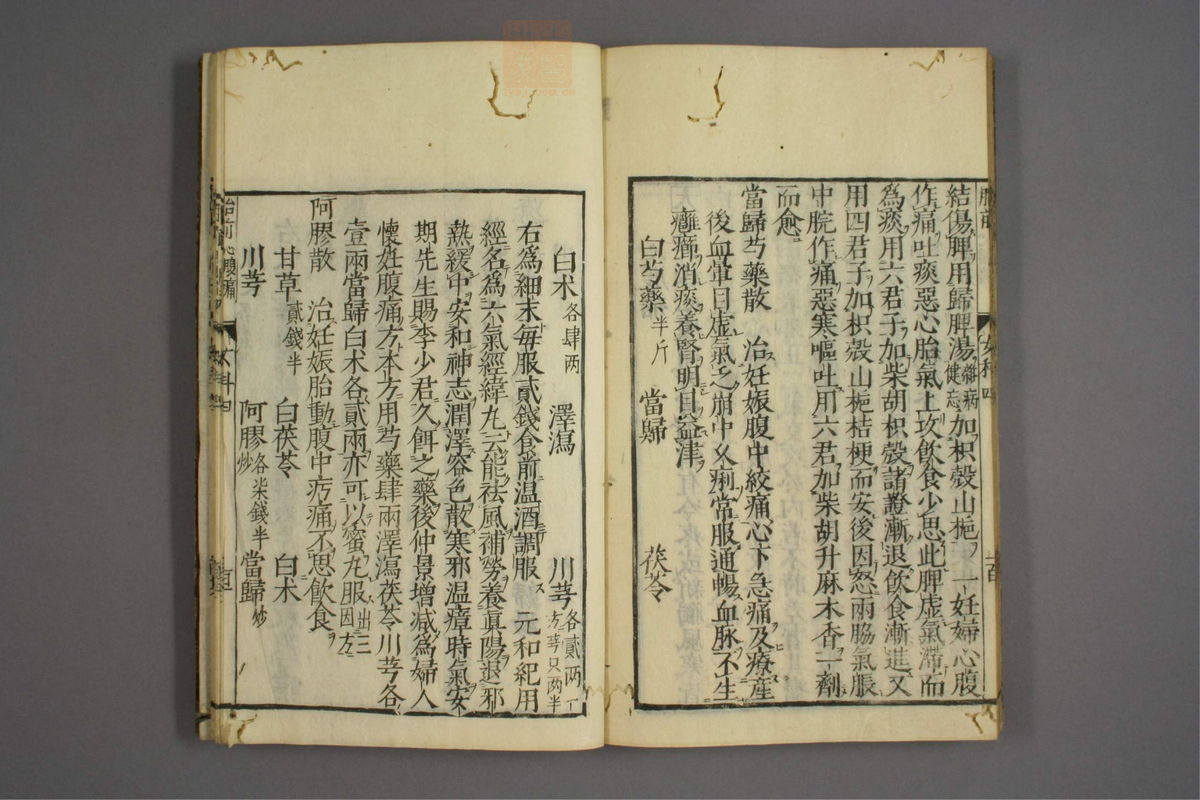 結傷脾用歸脾湯雜病健忘加枳殼山梔一妊婦心腹
作痛吐痰惡心胎氣上攻飲食少思此脾虛氣滯而
為痰用六君子加柴胡枳殼諸證漸退飲食漸進又
用四君子加枳殼山梔桔梗而安後因怒兩脇氣脹
中脘作痛惡寒嘔吐用六君加柴胡升麻木香一劑
而愈
當歸芍藥散 治妊娠腹中絞痛心下急痛及療產
後血暈目虛氣乏崩中久痢常服通暢血脉不生
癰癤消痰養腎明目益津
白芍藥半斤 當歸 茯苓
白术各肆兩 澤瀉 川芎各貳兩一方芎只兩半
右為細末每服貳錢食前温酒調服 元和紀用
經名為六氣經緯丸云能祛風補勞養眞陽退邪
熱緩中安和神志潤澤容色散寒邪温瘴時氣安
期先生賜李少君久餌之藥後仲景增減為婦人
懷妊腹痛方本方用芍藥肆兩澤瀉茯苓川芎各
壹兩當歸白术各貳兩亦可以蜜丸服出三因方
阿膠散 治妊娠胎動腹中疞痛不思飲食
甘草貳錢半 白茯苓 白术
川芎 阿膠炒各柒錢半 當歸炒
胎前心腹痛
女科四